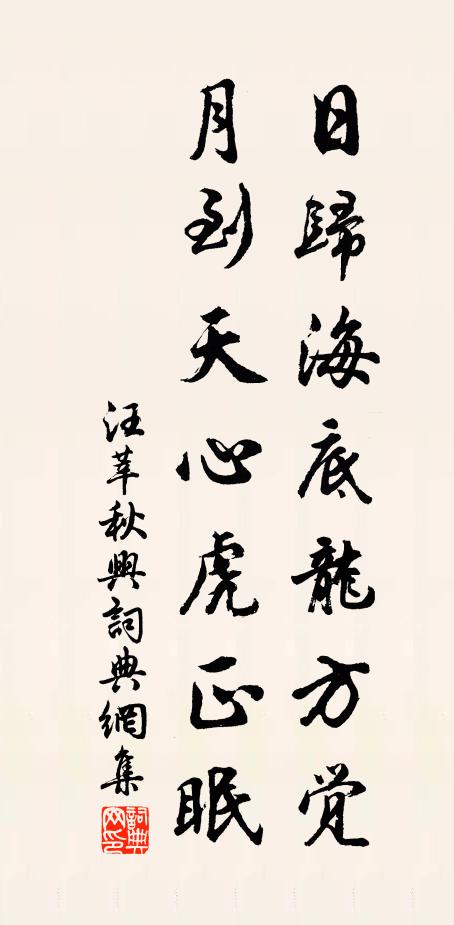 日歸海底龍方觉
月到天心虎正眠
汪莘秋興詞典網集
詞典網印